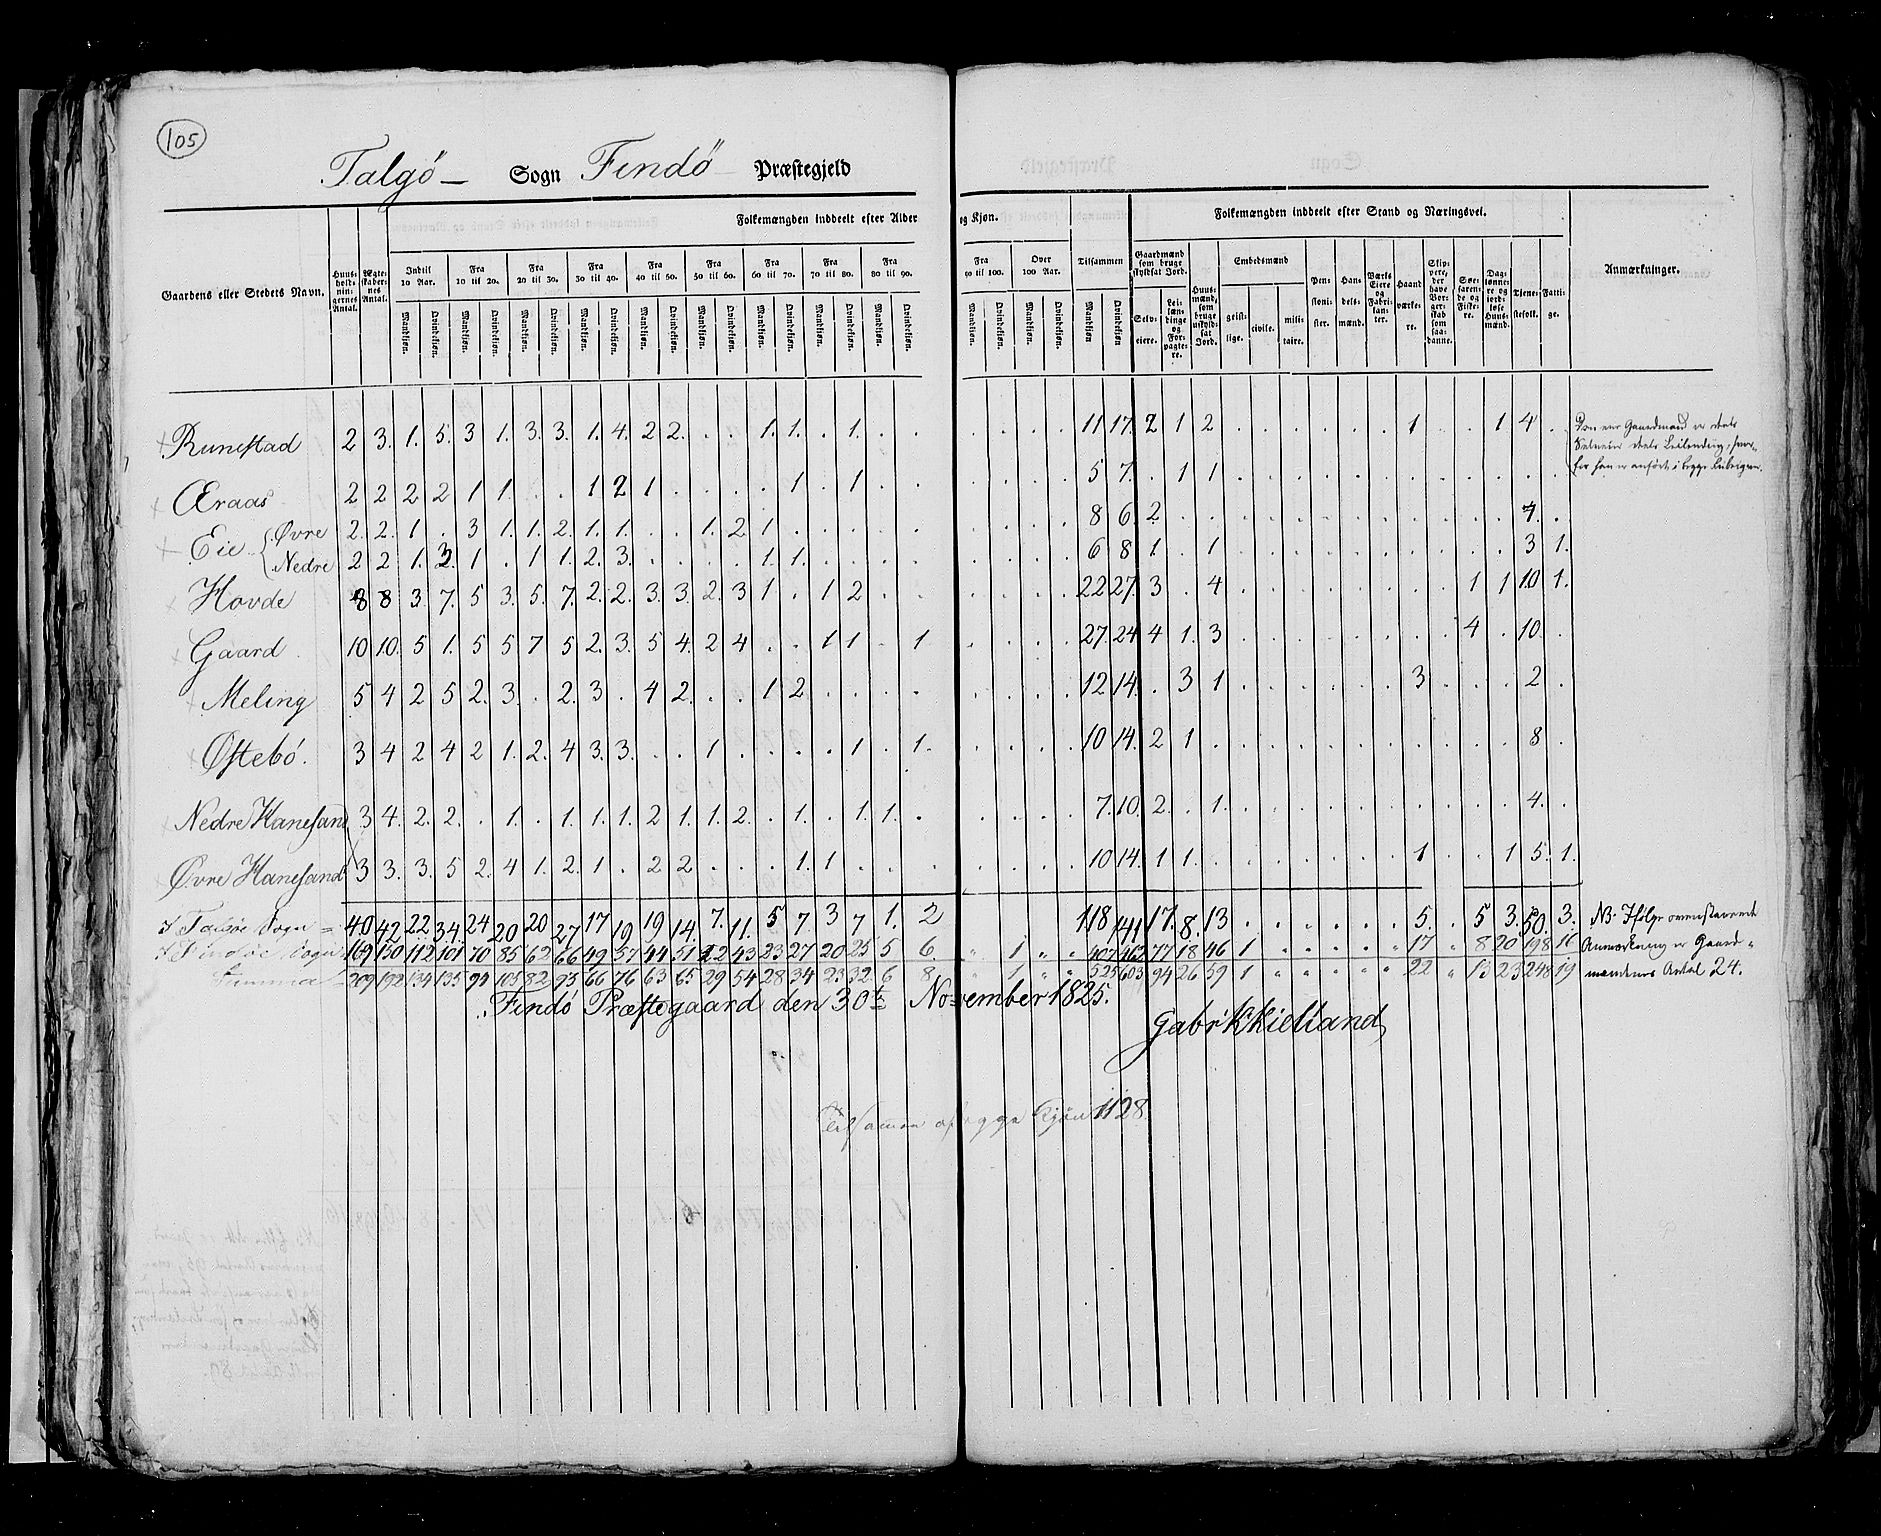 105
Talgö – Sogn Findö – Præstegjeld
Gaardens eller Stedets Navn.
Huusholdningernes Antal.
Ægteskabernes Antal.
Folkemængden inddeelt efter Alder og Kjøn.
Indtil 10 Aar. Fra 10 til 20. Fra 20 til 30. Fra 30 til 40. Fra 40 til 50. Fra 50 til 60. Fra 60 til 70. Fra 70 til 80. Fra 80 til 90. Fra 90 til 100. Over 100 Aar. Tilsammen
Mandkjøn. Qvindekjøn. Mandkjøn. Qvindekjøn. Mandkjøn. Qvindekjøn. Mandkjøn. Qvindekjøn. Mandkjøn. Qvindekjøn. Mandkjøn. Qvindekjøn. Mandkjøn. Qvindekjøn. Mandkjøn. Qvindekjøn. Mandkjøn. Qvindekjøn. Mandkjøn. Qvindekjøn. Mandkjøn. Qvindekjøn. Mandkjøn Qvindekjøn
Folkemængden inddeelt efter Stand og Næringsvei.
Gaardmænd som bruge skyldsat Jord.
Selveiere.
Leilændinge og Forpagtere.
Huusmænd, som bruge uskyldsat Jord.
Embedsmænd
geistlige. civile. militaire.
Pensionister.
Handelsmænd.
Værks Eiere og Fabrikanter.
Haandværkere.
Skippere, der have Borgerskab som saadanne.
Søefarende og Fiskere.
Daglønnere og jordløse Huusmænd.
Tjenestefolk.
Fattige.
Anmærkninger.
Runestad 2 3. 1. 5. 3 1. 3. 3. 1. 4. 2 2. . . 1. 1. . 1. . . . . . . 11 17. 2 1 2 . . . . . . 1 . . 1 4 .
Den ene Gaardmand er deels
Selveier deels Leilending, hvor-
for han er anført i begge Rubriqver.
Æraas 2 2 2 2 1 1. . . 1 2 1 . . . . 1 . 1 . . . . . . 5 7. . 1 1 . . . . . . . . . . . .
Eie { Øvre 2. 2. 1 . 3 1. 1. 2. 1. 1. . . 1. 2 1 . . . . . . . . . 8 6. 2 . . . . . . . . . . . . 4. .
Nedre 2 2 1. 3. 1 . 1 1. 2. 3. . . . . 1. 1. . . . . . . . . 6 8 1. . 1 . . . . . . . . . . 3 1.
Hovde 8 8 3. 7. 5 3. 5. 7. 2. 2. 3. 3. 2. 3 1 . 1 2 . . . . . . 22 27. 3 . 4 . . . . . . . . 1 1 10 1.
Gaard 10 10. 5 1. 5 5 7 5 2. 3. 5 4. 2 4 . . 1 1 . 1 . . . . 27. 24 4 1. 3 . . . . . . . . 4 . 10. .
Meling 5 4 2 5 2. 3. . 2. 3 . 4 2. . . 1 2 . . . . . . . . 12 14. . 3 1 . . . . . . 3 . . . 2 .
Østebö. 3 4 2 4 2 1. 2. 4 3. 3. . . 1 . . . . 1 . 1. . . . . 10 14. 2 1 . . . . . . . . . . . 8 .
Nedre Hanesand 3 4. 2. 2. . 1. . 1. 1. 1. 2 1. 1. 2 . 1. . 1. 1. . . . . . 7. 10. 2 . 1. . . . . . . . . . . 4. .
Øvre Hanesand 3 3. 3. 5 2. 4 1. 2. 1 . 2 2 . . . 1. 1 . . . . . . . 10 14. 1 1. . . . . . . . 1 . . 1 5. 1.
I Talgöe Sogn = 40 42 22 34. 24 20 20 27 17 19 19 14. 7. 11. 5 7. 3 7 1. 2 118 141 17. 8. 13 . . . . . . 5. . 5 3. 50. 3.
I Findöe Sogn 169 150 112 101 70 85 62 66 49 57 44 51 22 43 23 27 20 25 5 6 " 1 " " 407 462 77 18 46 1 " " " " " 17 " 8 20 198 16
Summa 209 192 134 135 94 105 82 93 66 76 63 65 29 54 28 34 23 32 6 8 " 1 " " 525 603 94 26 59 1 " " " " " 22 " 13 23 248 19
NB. Ifølge ovenstaaende
Anmærkning er Gaard-
mændenes Antal 24.
Findö Præstegaard den 30te November 1825.
Gabr. K Kielland
Tilsamen af begge Kjøn 1128.